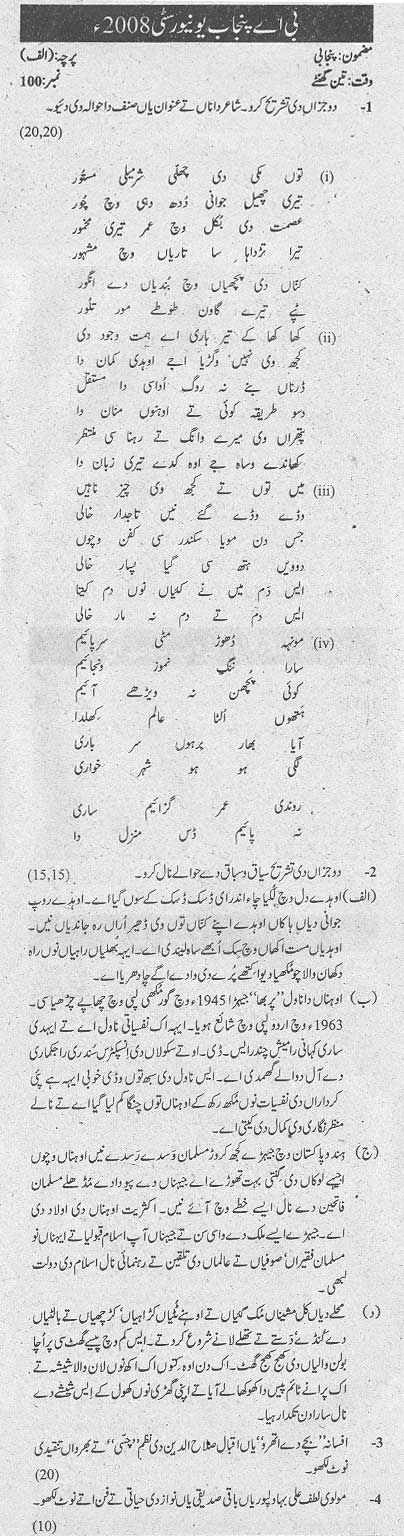 بی اے پنجاب یونیورسٹی 2008ء
مضمون: پنجابی پرچہ: (الف)
وقت: تین گھنٹے نمبر: 100
1- دو جزاں دی تشریح کرو۔ شاعر دا ناں تے عنوان یاں صنف دا حوالہ وی دیو۔
(20,20)
(i) توں مکی دی چھلی شرمیلی مستور
تیری چھیل جوانی دُدھ دہی وچ چُور
عصمت دی بُکل وچ عمر تیری مخمور
تیرا نژداہا سا تاریاں وچ مشہور
کنّاں دی پچھیاں وچ بُندیاں دے انگور
ٹپے تیرے گاون طوطے مور تلور
(ii) کھا کھا کے تیر ہاری اے ہمت وجود دی
کجھ وی نہیں وگڑیا اجے اوہدی کمان دا
ڈرناں بنے نہ روگ اُداسی دا مستقل
دسو طریقہ کوئی تے اوہنوں منان دا
پتھراں وی میرے وانگ تے رہنا سی منتظر
کھاندے وساہ جے اوہ کدے تیری زبان دا
(iii) میں توں تے کجھ وی چیز ناہیں
وڈے وڈے گئے نیں تاجدار خالی
جس دن مویا سکندر سی کفن وچوں
دوویں ہتھ سی گیا پسار خالی
ایس دَم میں نے کئیاں نوں دم کیتا
ایس دم تے دم نہ مار خالی
(iv) مونہہ دُھوڑ مٹی سر پائیم
سارا ننگ نموز ونجائیم
کوئی پچھن نہ ویڑھے آئیم
ہتھوں اُلٹا عالم کھلدا
آیا بھار برہوں سر باری
لگی ہو ہو شہر خواری
روندی عمر گزائیم ساری
نہ پائیم ڈس منزل دا
2- دو جزاں دی تشریح سیاق و سباق دے حوالے نال کرو۔ (15,15)
(الف) اوہدے دل وچ لُکیا چاء اندرای ڈسک ڈسک کے سوں گیا اے۔ اوہدے روپ
جوانی دیاں ہاکاں اوہدے اپنے کنّاں توں وی ڈھیر اُراں رہ جاندیاں نیں۔
اوہدیاں مست اکھاں وچ سِک اُبھے ساہ لیندی اے۔ ایہہ بھلیاں راہیاں نوں راہ
دکھان والا چومکھیا دیوا کتھے پُرے دی دادے اگے چا دھریا اے۔
(ب) اوہناں دا ناول ”پربھا“ جیہڑا 1945ء وچ گورمکھی لپی وچ چھاپے چڑھیا سی۔
1963ء وچ اردو لپی وچ شائع ہویا۔ ایہہ اک نفسیاتی ناول اے تے ایہدی
ساری کہانی رامیش چندر ایس۔ ڈی۔ او تے سکولاں دی انسپکٹرس سُندری راجکماری
دے آل دوالے گھمدی اے۔ ایس ناول دی سبھ توں وڈی خوبی ایہہ ہے پئی
کرداراں دی نفسیات نوں مُکھ رکھ کے اوہناں توں چنگا کم لیا گیا اے تے نالے
منظر نگاری وی کمال دی کیتی اے۔
(ج) ہند و پاکستان وچ جیہڑے کجھ کروڑ مسلمان وَسدے رَسدے نیں اوہناں وچوں
اجیہے لوکاں دی گنتی بہت تھوڑی اے جیہناں دے پیو دادے مُڈھلے مسلمان
فاتحین دے نال ایسے خطے وچ آئے نیں۔ اکثریت اوہناں دی اولاد دی
اے۔ جیہڑے ایسے ملک دے واسی سن تے جیہناں آپ اسلام قبولیا تے ایہناں نوں
مسلمان فقیراں‘ صوفیاں تے عالماں دی تلقین تے رہنمائی نال اسلام دی دولت
لبھی۔
(د) محلے دیاں کل مشیناں مُک گئیاں تے اوہنے نُٹیاں کڑاہیاں‘ کڑچھیاں تے بالٹیاں
دے کُنڈے‘ دَستے تے تھلے لانے شروع کر دتے۔ ایس کم وچ پیسے گھٹ سی پر اُچا
بولن والیاں دی کھچ کھچ گھٹ۔ اک دن اوہ رکتوں اک اکھ نوں لان والا شیشہ تے
اک پرانے ٹائم پیس دا کھوکھا لے آیا تے اپنی گھڑی نوں کھول کے ایس شیشے دے
نال سارا دن تکدا رہیا۔
3- افسانہ ”بچے دے اتھرو“ یاں اقبال صلاح الدین دی نظم ”چُنی“ تے بھرواں تنقیدی
نوٹ لکھو۔ (20)
4- مولوی لطف علی بہاولپوریاں باقی صدیقی یاں نواز دی حیاتی تے فن اتے نوٹ لکھو۔
(10)